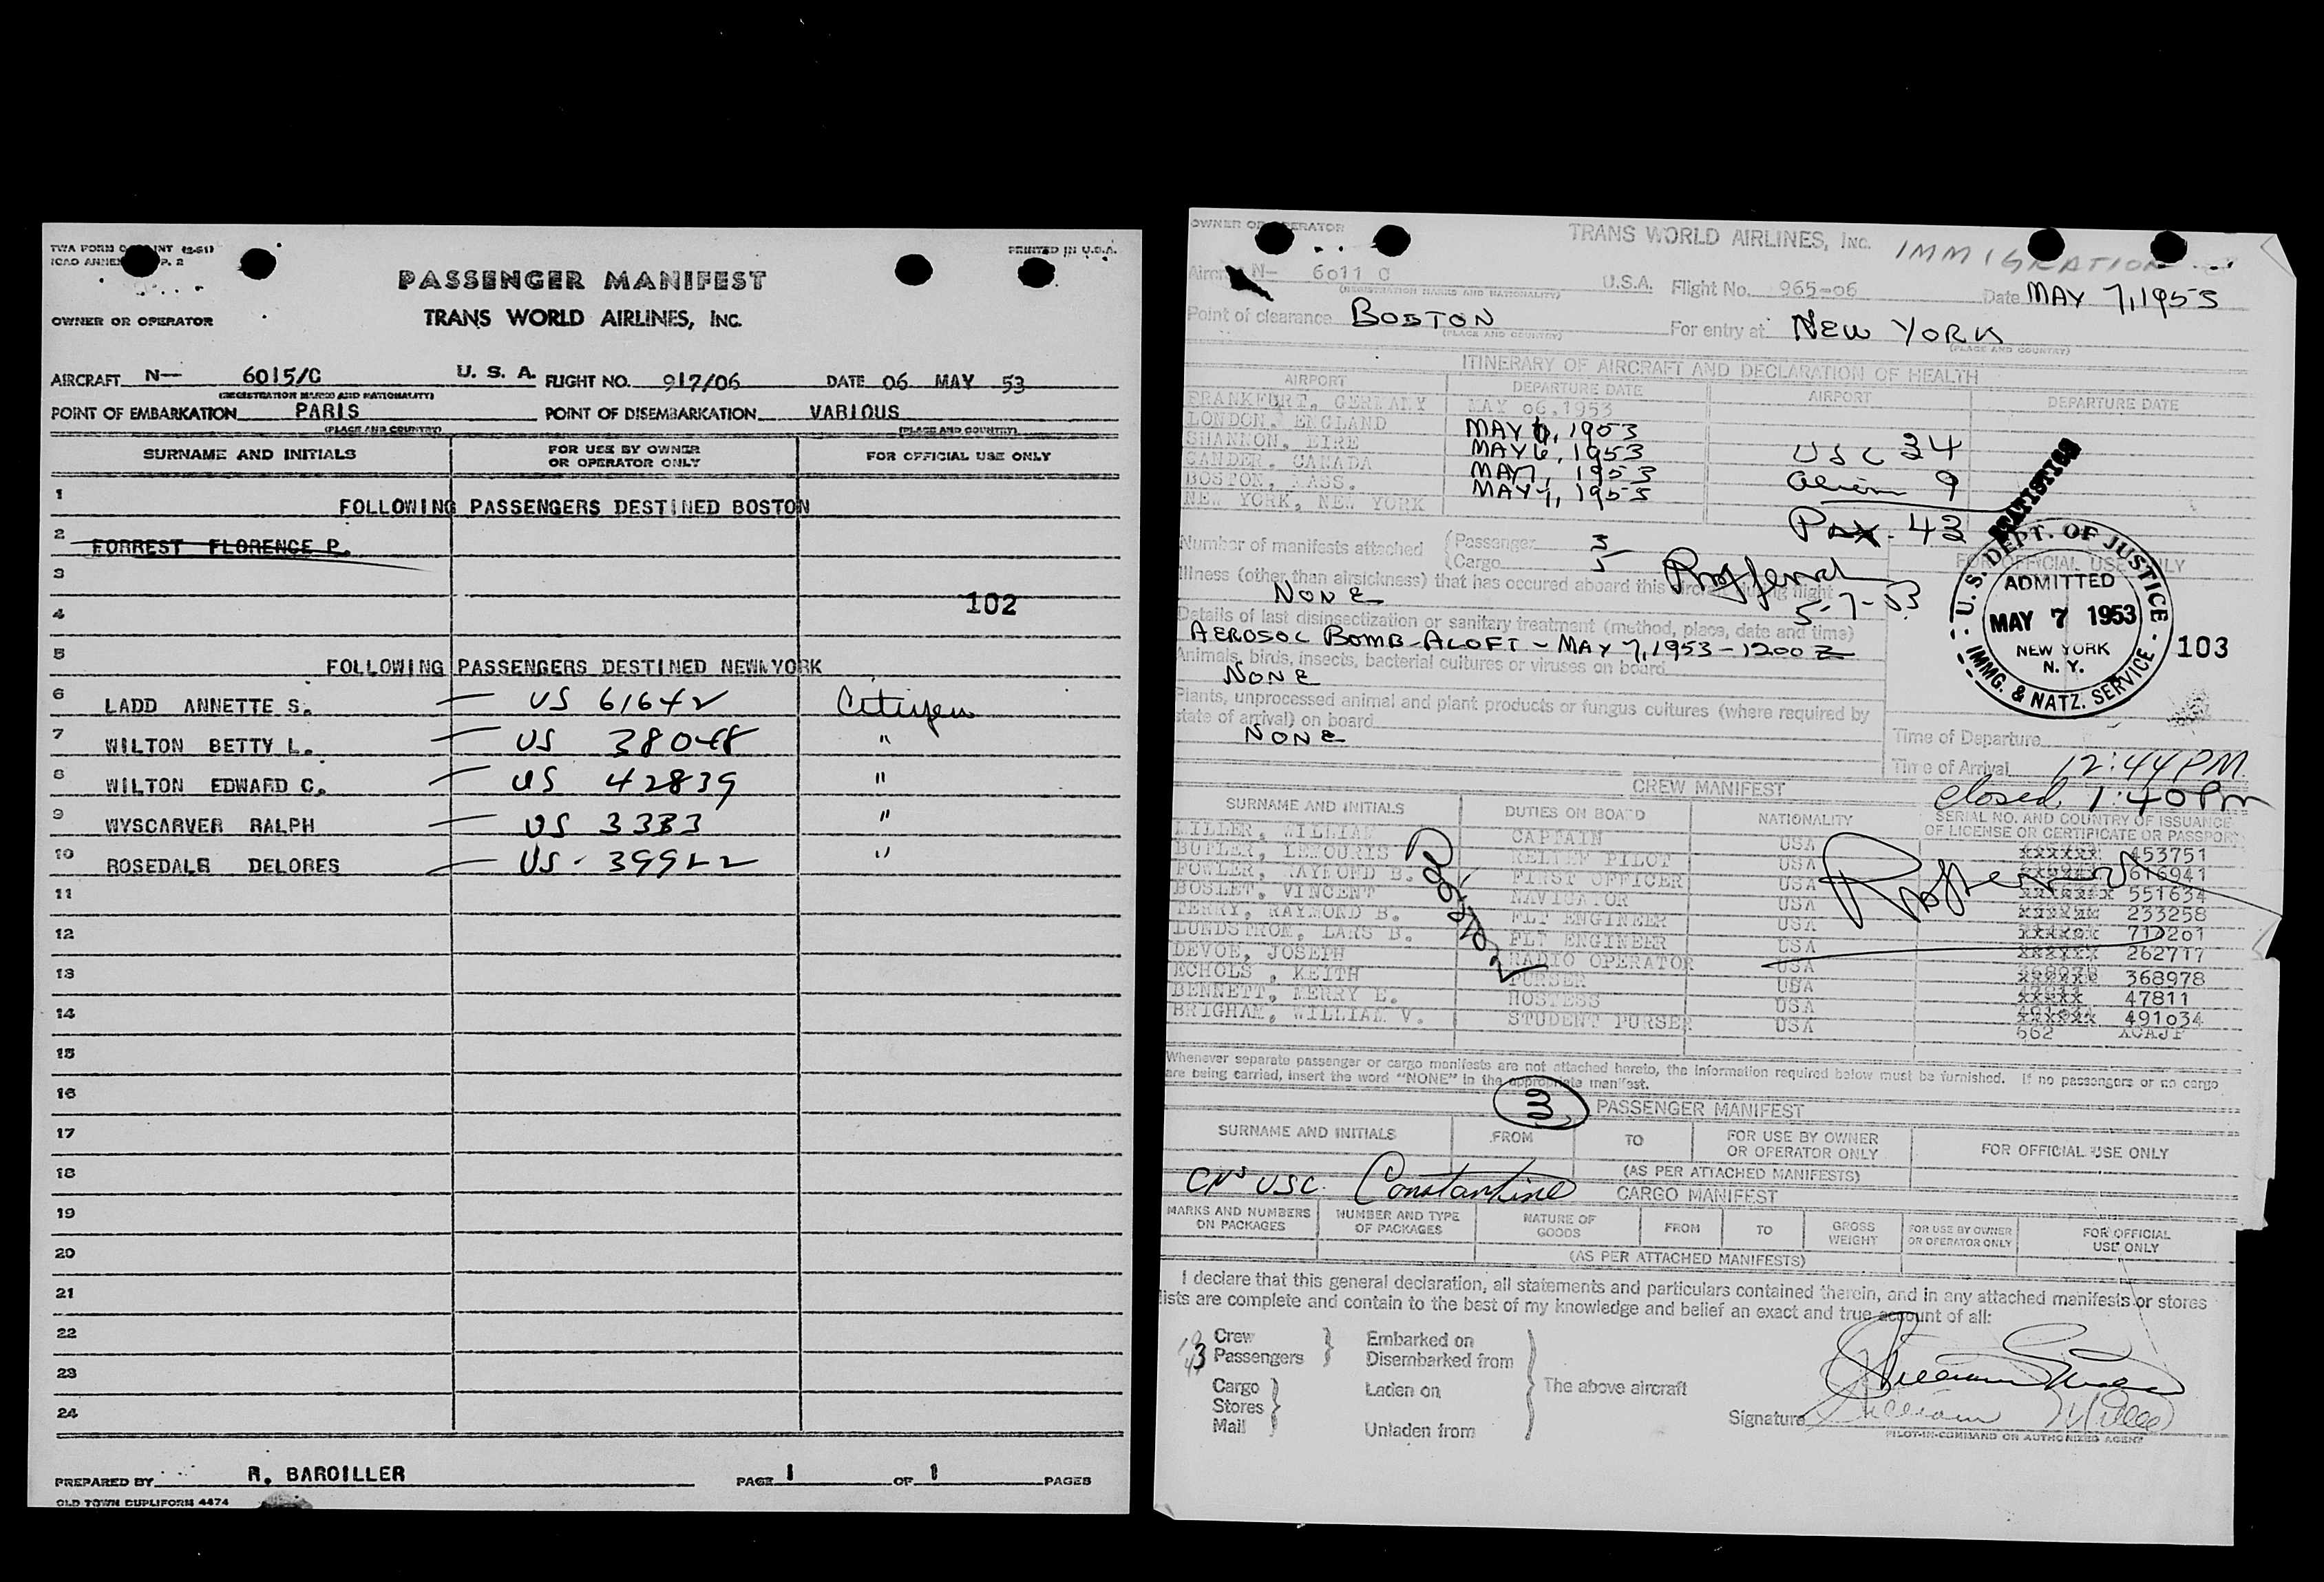 PRINTED IN U.S.A.
PASSENGER MANIFEST
OWNER OR OPERATOR
TRANS WORLD AIRLINES, INC.
AIRCRAFT N— 6015/C U. S. A. FLIGHT NO. 917/06 DATE 06 MAY 53
(REGISTRATION MARKS AND NATIONALITY)
POINT OF EMBARKATION PARIS POINT OF DISEMBARKATION VARIOUS
(PLACE AND COUNTRY) (PLACE AND COUNTRY)
SURNAME AND INITIALS FOR USE BY OWNER OR OPERATOR ONLY FOR OFFICIAL USE ONLY
1 FOLLOWING PASSENGERS DESTINED BOSTON
2 FORREST FLORENCE P.
3
4 102
5 FOLLOWING PASSENGERS DESTINED NEW YORK
6 LADD ANNETTE S. — US 61642 Citizen
7 WILTON BETTY L. — US 38048 "
8 WILTON EDWARD C. — US 42839 "
9 WYSCARVER RALPH — US 3383 "
10 ROSEDALE DELORES — US - 39922 "
11
12
13
14
15
16
17
18
19
20
21
22
23
24
PREPARED BY R. BAROILLER PAGE 1 OF 1 PAGES
OLD TOWN DUPLIFORM 4474
OWNER OR OPERATOR TRANS WORLD AIRLINES, INC. IMMIGRATION
N— 6011 C U.S.A. Flight No. 965-06 Date MAY 7, 1953
(REGISTRATION MARKS AND NATIONALITY)
Point of clearance BOSTON For entry at NEW YORK
(PLACE AND COUNTRY) (PLACE AND COUNTRY)
ITINERARY OF AIRCRAFT AND DECLARATION OF HEALTH
AIRPORT DEPARTURE DATE AIRPORT DEPARTURE DATE
FRANKFURT, GERMANY MAY 06,1953
LONDON, ENGLAND MAY 6, 1953
SHANNON, EIRE MAY 6, 1953 USC 34
GANDER, CANADA MAY 7, 1953 Alien 9
BOSTON, MASS. MAY 7, 1953
NEW YORK, NEW YORK PAX. 43
Number of manifests attached Passenger 3
Cargo 5
5-7-53
FOR OFFICIAL USE ONLY
Illness (other than airsickness) that has occured aboard this aircraft during flight
NONE
Details of last disinsectization or sanitary treatment (method, place, date and time)
AEROSOL BOMB-ALOFT - MAY 7, 1953 - 1200 Z
Animals, birds, insects, bacterial cultures or viruses on board
NONE
Plants, unprocessed animal and plant products or fungus cultures (where required by
state of arrival) on board
NONE
U.S. DEPT. OF JUSTICE
ADMITTED
MAY 7 1953
NEW YORK
N. Y.
IMMG. & NATZ. SERVICE
103
Time of Departure
Time of Arrival 12:44 PM.
closed 1:40 Pm
CREW MANIFEST
SURNAME AND INITIALS DUTIES ON BOARD NATIONALITY SERIAL NO. AND COUNTRY OF ISSUANCE OF LICENSE OR CERTIFICATE OR PASSPORT
MILLER, WILLIAM CAPTAIN USA 453751
BUTLER, LEMOURIS RELIEF PILOT USA 616941
FOWLER, RAYMOND B. FIRST OFFICER USA 551634
BOSLET, VINCENT NAVIGATOR USA 233258
TERRY, RAYMOND B. FLT ENGINEER USA 717201
LUNDSTROM, LARS B. FLT ENGINEER USA 262717
DEVOE, JOSEPH RADIO OPERATOR USA 368978
ECHOLS, KEITH PURSER USA 47811
BENNETT, MERRY L. HOSTESS USA 491034
BRIGHAM, WILLIAM V. STUDENT PURSER USA 662
Whenever separate passenger or cargo manifests are not attached hereto, the information required below must be furnished. If no passengers or no cargo
are being carried, insert the word "NONE" in the appropriate manifest.
3 PASSENGER MANIFEST
SURNAME AND INITIALS FROM TO FOR USE BY OWNER OR OPERATOR ONLY FOR OFFICIAL USE ONLY
(AS PER ATTACHED MANIFESTS)
USC. Constantine CARGO MANIFEST
MARKS AND NUMBERS ON PACKAGES NUMBER AND TYPE OF PACKAGES NATURE OF GOODS FROM TO GROSS WEIGHT FOR USE BY OWNER OR OPERATOR ONLY FOR OFFICIAL USE ONLY
(AS PER ATTACHED MANIFESTS)
I declare that this general declaration, all statements and particulars contained therein, and in any attached manifests or stores
lists are complete and contain to the best of my knowledge and belief an exact and true account of all:
Crew Embarked on
43 Passengers Disembarked from
Cargo Laden on The above aircraft
Stores
Mail Unladen from
Signature William Miller
PILOT-IN-COMMAND OR AUTHORIZED AGENT